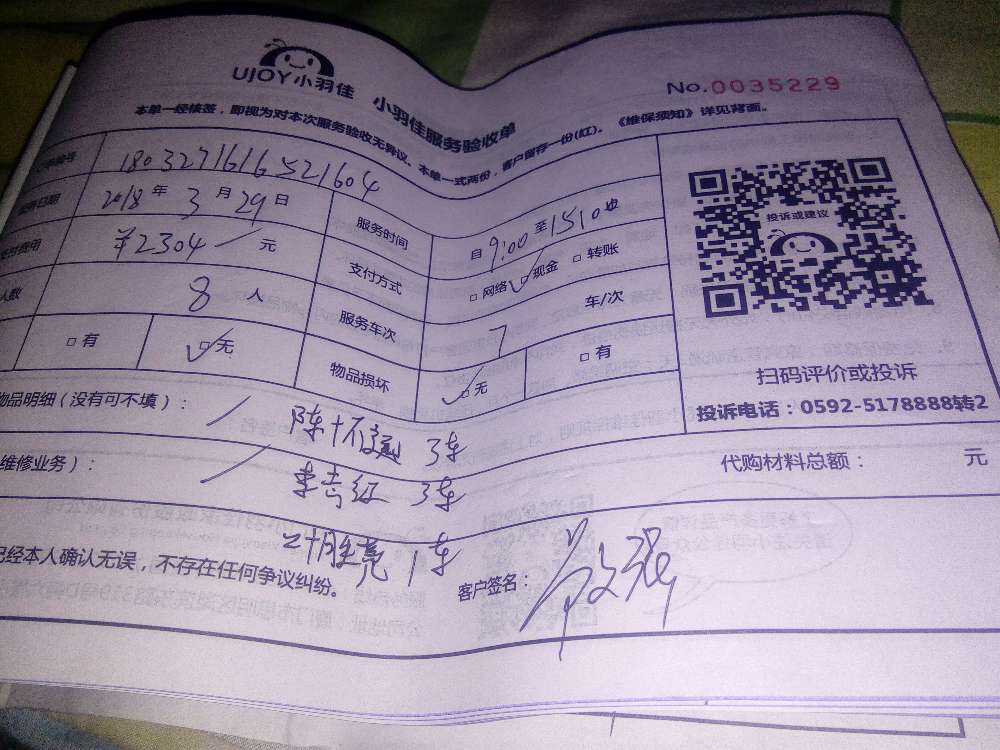 UJOY小羽佳 小羽佳服务验收单
No.0035229
本单一经核签，即视为对本次服务验收无异议。本单一式两份，客户留存一份(红)。《维保须知》详见背面。
1803271616521604
日期 2018年3月29日 服务时间 自9:00至1510止
费用 ¥2304元 支付方式 □网络 □现金 □转账
人数 8人 服务车次 7 车/次
□有 □无 物品损坏 □无 □有
投诉或建议
扫码评价或投诉
投诉电话：0592-5178888转2
物品明细（没有可不填）： 3车
维修业务）： 3车
代购材料总额： 元
1车
已经本人确认无误，不存在任何争议纠纷。 客户签名：